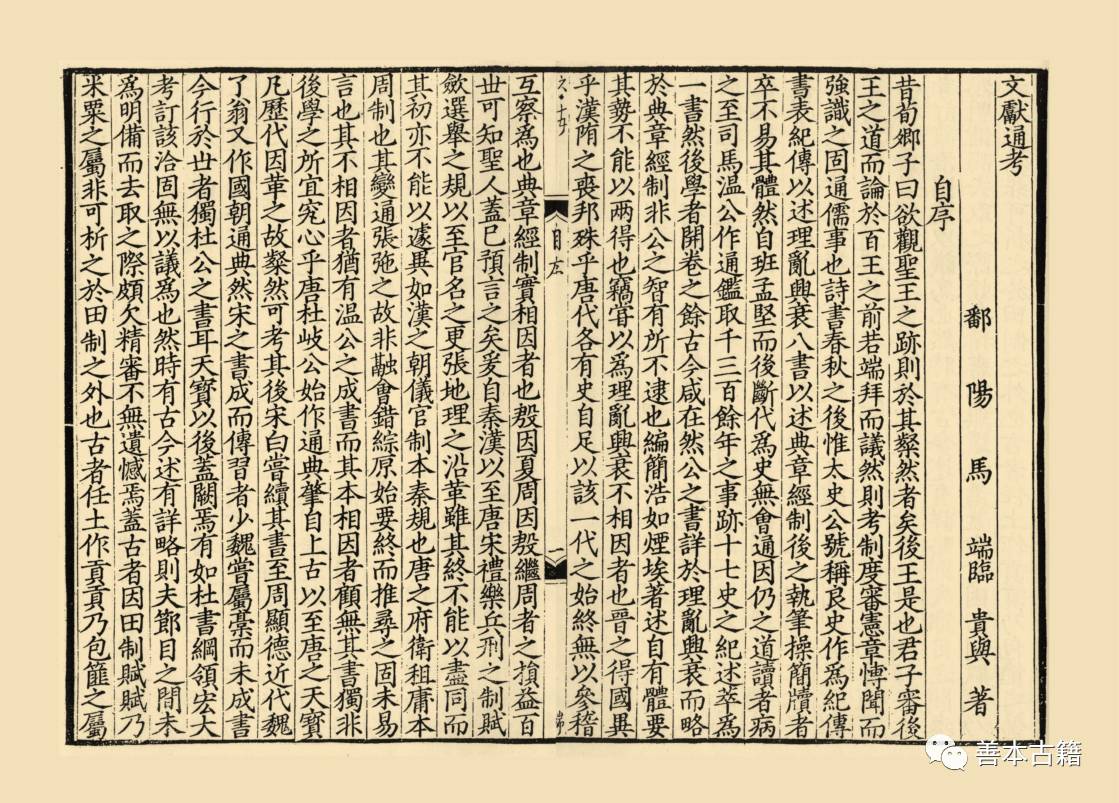 文獻通考
鄱陽馬端臨貴與著
自序
昔荀卿子曰欲觀聖王之跡則於其粲然者矣後王是也君子審後
王之道而論於百王之前若端拜而議然則考制度審憲章博聞而
強識之固通儒事也詩書春秋之後惟太史公號稱良史作爲紀傳
書表紀傳以述理亂興衰八書以述典章經制後之執筆操簡牘者
卒不易其體然自班孟堅而後斷代爲史無會通因仍之道讀者病
之至司馬溫公作通鑑取千三百餘年之事跡十七史之紀述萃爲
一書然後學者開卷之餘古今咸在然公之書詳於理亂興衰而略
於典章經制非公之智有所不逮也編簡浩如煙埃著述自有體要
其勢不能以兩得也竊甞以爲理亂興衰不相因者也晉之得國異
乎漢隋之喪邦殊乎唐代各有史自足以該一代之始終無以參稽
一
互察爲也典章經制實相因者也殷因夏周因殷繼周者之損益百
世可知聖人蓋已預言之矣爰自秦漢以至唐宋禮樂兵刑之制賦
斂選舉之規以至官名之更張地理之沿革雖其終不能以盡同而
其初亦不能以遽異如漢之朝儀官制本秦規也唐之府衛租庸本
周制也其變通張弛之故非融會錯綜原始要終而推尋之固未易
言也其不相因者猶有溫公之成書而其本相因者顧無其書獨非
後學之所宜究心乎唐杜岐公始作通典肇自上古以至唐之天寶
凡歷代因革之故粲然可考其後宋白嘗續其書至周顯德近代魏
了翁又作國朝通典然宋之書成而傳習者少魏嘗屬稾而未成書
今行於世者獨杜公之書耳天寶以後蓋闕焉有如杜書綱領宏大
考訂該洽固無以議爲也然時有古今述有詳略則夫節目之間未
爲明備而去取之際頗欠精審不無遺憾焉蓋古者因田制賦賦乃
米粟之屬非可析之於田制之外也古者任土作貢貢乃包篚之屬
善本古籍